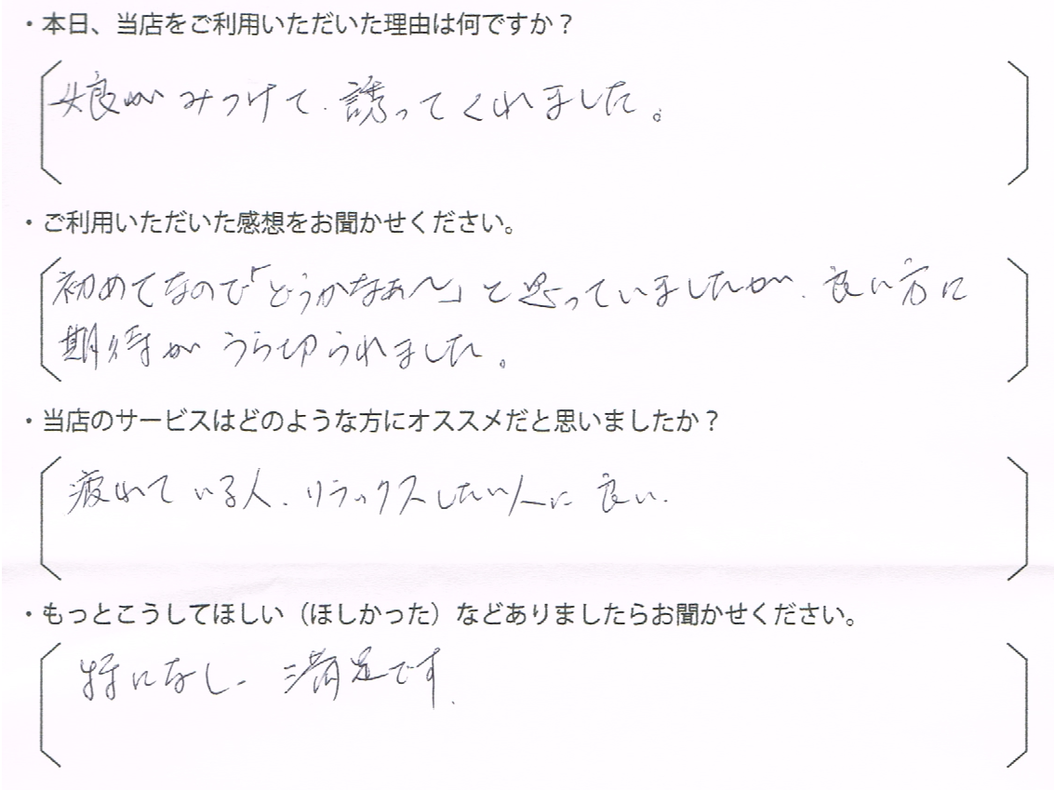 ・本日、当店をご利用いただいた理由は何ですか？
娘がみつけて、誘ってくれました。
・ご利用いただいた感想をお聞かせください。
初めてなので「どうかなぁ〜」と思っていましたが、良い方に
期待がうら切られました。
・当店のサービスはどのような方にオススメだと思いましたか？
疲れている人、リラックスしたい人に良い.
・もっとこうしてほしい（ほしかった）などありましたらお聞かせください。
特になし- 満足です.